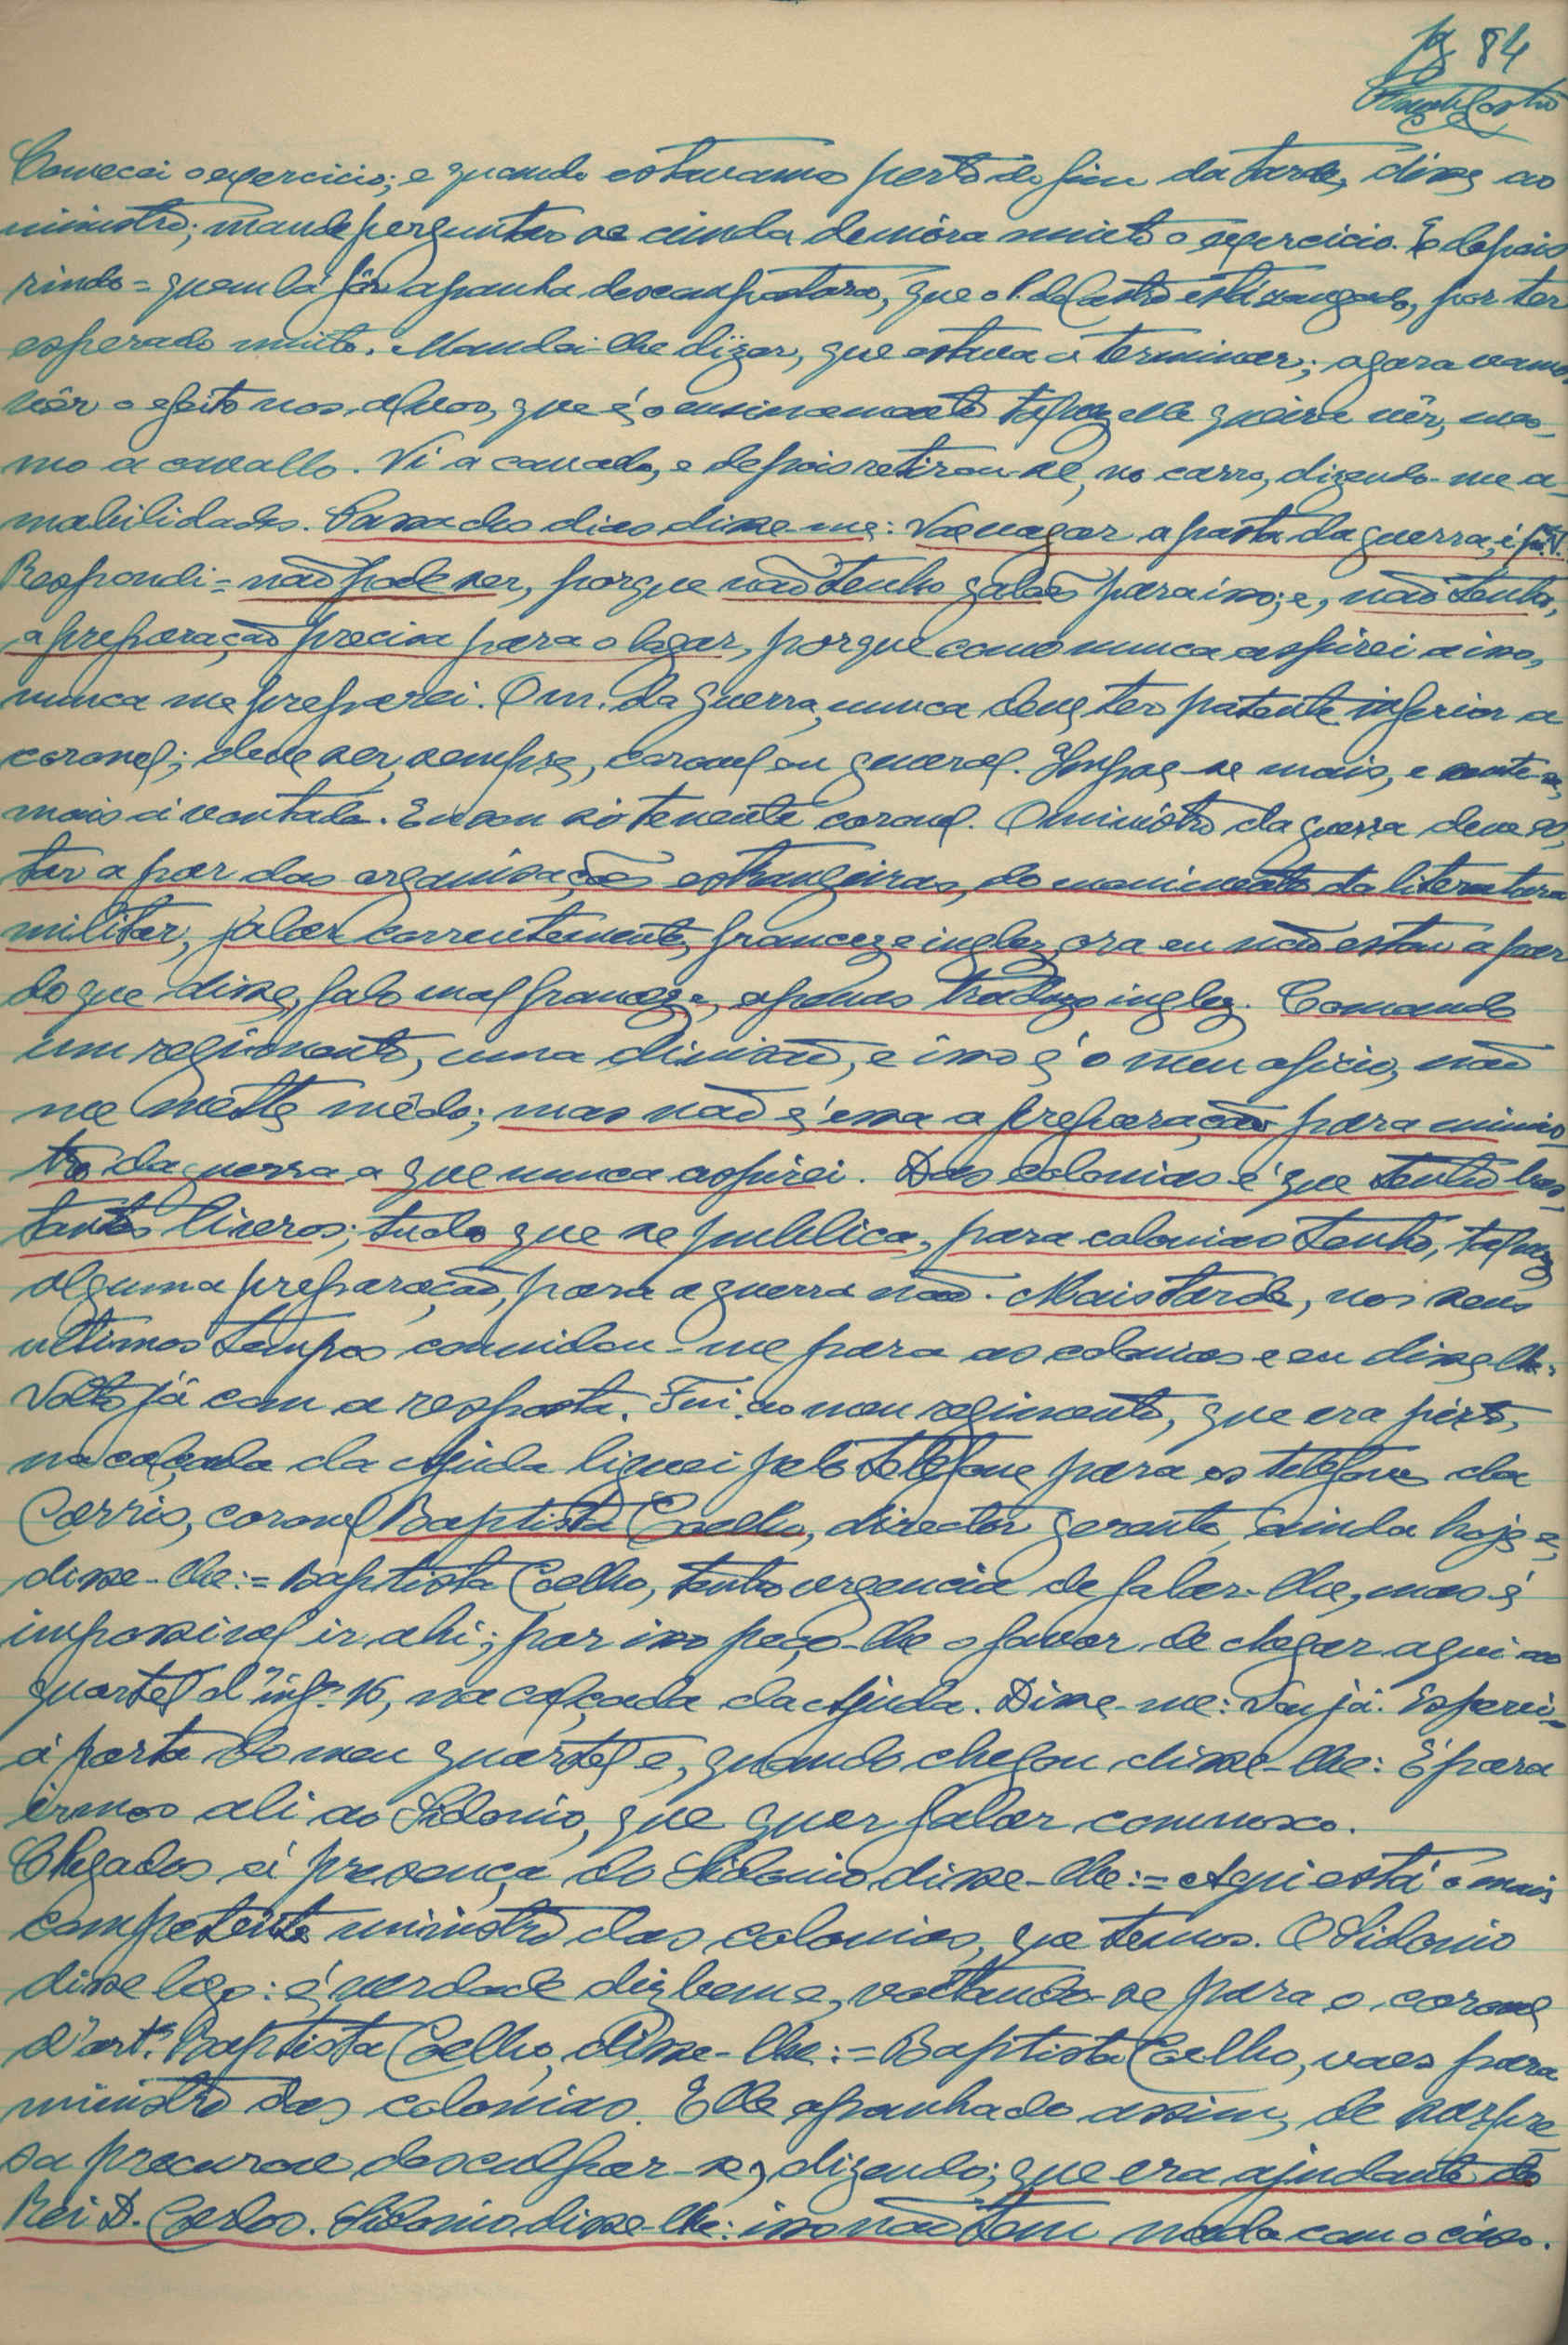 pg 84
Comecei o exercicio; e quando estavamos perto do fim da tarde, disse ao
ministro; mande perguntar se ainda demóra muito o exercicio. E depois
rindo = quem lá fôr apanha descompostura, que o P. de Castro está zangado, por ter
esperado muito. Mandei-lhe dizer, que estava a terminar; agora vamos
vêr o efeito nos alvos, que é o ensinamento talvez elle queira vêr, mes-
mo a cavallo. Vi a cavado, e depois retirou-se, no carro, dizendo-me a-
mabilidades. Passados dias disse-me: Vae vagar a pasta da guerra, é p.ª V.
Respondi = não pode ser, porque não tenho galões para isso; e, não tenho,
a preparação precisa para o logar, porque como nunca aspirei a isso,
nunca me preparei. O m. da guerra, nunca deve ter patente inferior a
coronel; deve ser, sempre, coronel ou general. Impoe-se mais, e sente-se,
mais á vontade. Eu sou só tenente coronel. O ministro da guerra deve es-
tar a par das organisações estrangeiras, do movimento da literatura
militar, falar correntemente, francez e inglez, ora eu não estou a par
do que disse, falo mal francez e, apenas traduzo inglez. Comando
um regimento, uma divisão, e isso é o meu oficio, não
me mette mêdo; mas não é essa a preparação para minis-
tro da guerra a que nunca aspirei. Das colonias é que tenho bas-
tantes livros; tudo que se publica, para colonias tenho, talvez
alguma preparação, para a guerra não. Mais tarde, nos seus
ultimos tempos convidou-me para as colonias e eu disse-lhe:
Volto já com a resposta. Fui ao meu regimento, que era perto,
na calçada da Ajuda liguei pelo telefone para os telefones da
Carris, coronel Baptista Coelho, director gerente, ainda hoje e,
disse-lhe: = Baptista Coelho, tenho urgencia de falar-lhe, mas é
impossivel ir ahi; por isso peço-lhe o favor de chegar aqui ao
quartel d'inf.ª 16, na calçada da Ajuda. Disse-me: Vou já. Esperei-o
á porta do meu quartel e, quando chegou disse-lhe: É para
irmos ali ao Sidonio, que quer falar comnosco.
Chegados á presença do Sidonio disse-lhe: = Aqui está o mais
competente ministro das colonias, que temos. O Sidonio
disse logo: é verdade diz bem e, voltando-se para o coronel
d'art.ª Baptista Coelho, disse-lhe: = Baptista Coelho, vaes para
ministro das colonias. Elle apanhado assim, de surpre-
sa procurou desculpar-se, dizendo; que era ajudante do
Rei D. Carlos. Sidonio disse-lhe: isso não tem nada com o cáso.